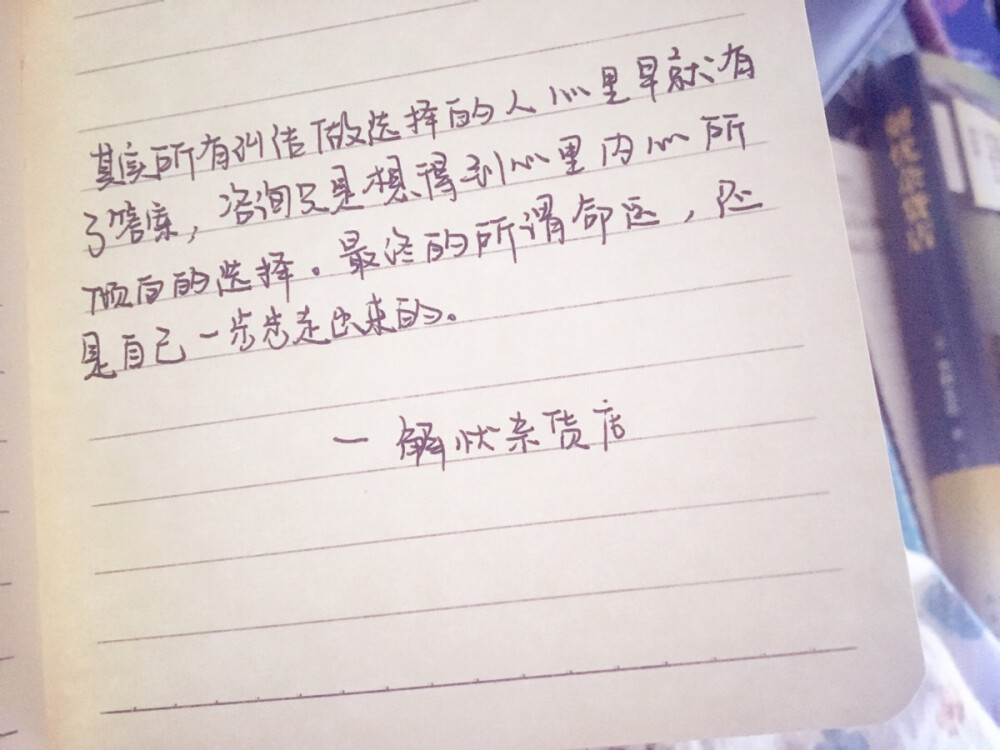 其实所有纠结做选择的人心里早就有
了答案，咨询只是想得到心里内心所
倾向的选择。最终的所谓命运，还
是自己一步步走出来的。
一 解忧杂货店
解忧杂货店